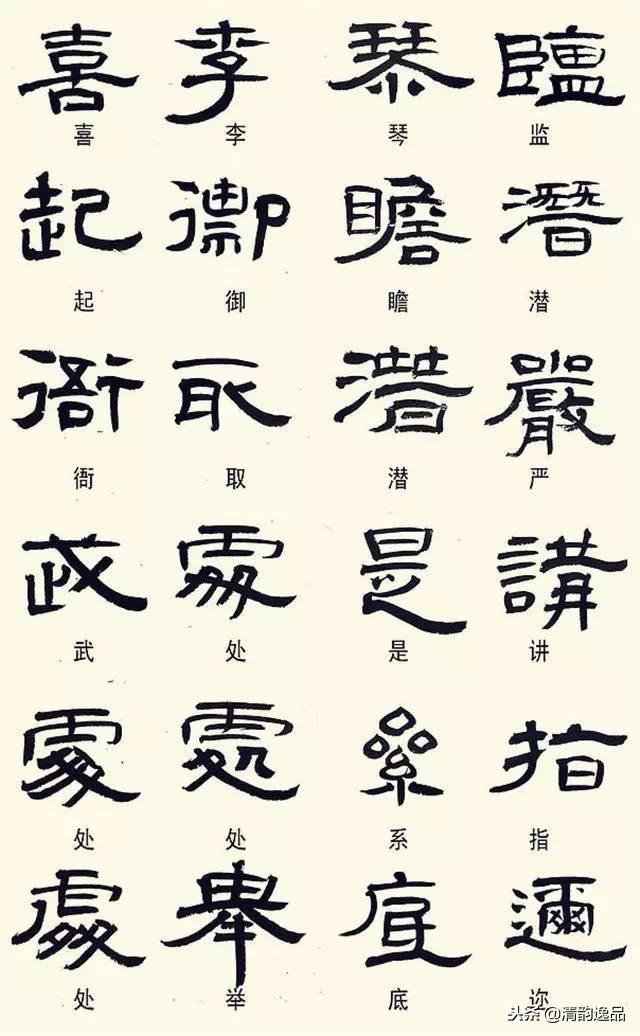 喜 李 琴 監
喜 李 琴 监
起 御 瞻 潛
起 御 瞻 潜
衙 取 潛 嚴
衙 取 潜 严
武 處 是 講
武 处 是 讲
處 處 系 指
处 处 系 指
處 舉 底 邇
处 举 底 迩
头条 @清韵逸品